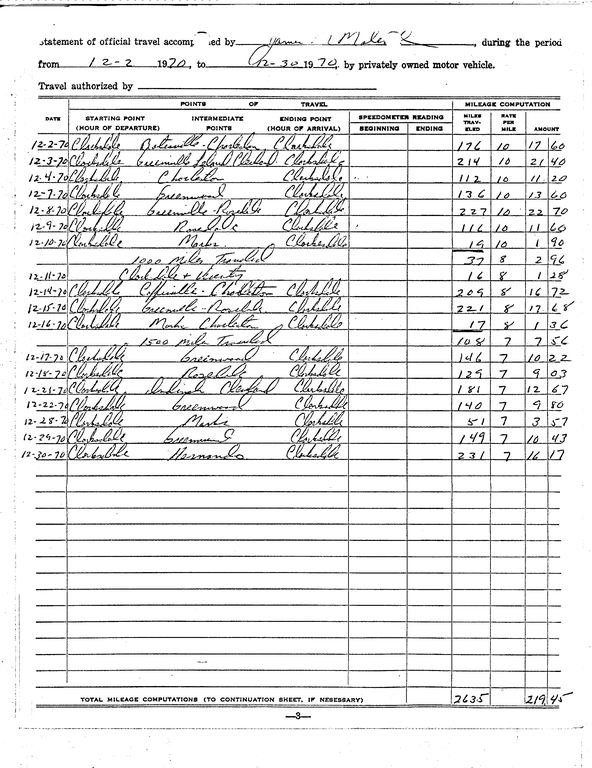 Statement of official travel accomp ed by James Miles, during the period
from 12-2 1970, to 12-30 1970, by privately owned motor vehicle.
Travel authorized by
POINTS OF TRAVEL MILEAGE COMPUTATION
DATE STARTING POINT (HOUR OF DEPARTURE) INTERMEDIATE POINTS ENDING POINT (HOUR OF ARRIVAL) SPEEDOMETER READING BEGINNING ENDING MILES TRAV-ELED RATE PER MILE AMOUNT
12-2-70 Clarksdale Batesville-Charleston Clarksdale 176 10 17 60
12-3-70 Clarksdale Greenville Leland Cleveland Clarksdale 214 10 21 40
12-4-70 Clarksdale Charleston Clarksdale 112 10 11 20
12-7-70 Clarksdale Greenwood Clarksdale 136 10 13 60
12-8-70 Clarksdale Greenville-Rosedale Clarksdale 227 10 22 70
12-9-70 Clarksdale Rosedale Clarksdale 116 10 11 60
12-10-70 Clarksdale Marks Clarksdale 19 10 1 90
1000 Miles Traveled 37 8 2 96
12-11-70 Clarksdale & Vicinity 16 8 1 28
12-14-70 Clarksdale Coffeeville-Charleston Clarksdale 209 8 16 72
12-15-70 Clarksdale Greenville-Rosedale Clarksdale 221 8 17 68
12-16-70 Clarksdale Marks Charleston Clarksdale 17 8 1 36
1500 Miles Traveled 108 7 7 56
12-17-70 Clarksdale Greenwood Clarksdale 146 7 10 22
12-18-70 Clarksdale Rosedale Clarksdale 129 7 9 03
12-21-70 Clarksdale Cleveland Clarksdale 181 7 12 67
12-22-70 Clarksdale Greenwood Clarksdale 140 7 9 80
12-28-70 Clarksdale Marks Clarksdale 51 7 3 57
12-29-70 Clarksdale Greenwood Clarksdale 149 7 10 43
12-30-70 Clarksdale Hernando Clarksdale 231 7 16 17
TOTAL MILEAGE COMPUTATIONS (TO CONTINUATION SHEET, IF NECESSARY) 2635 219 45
—3—